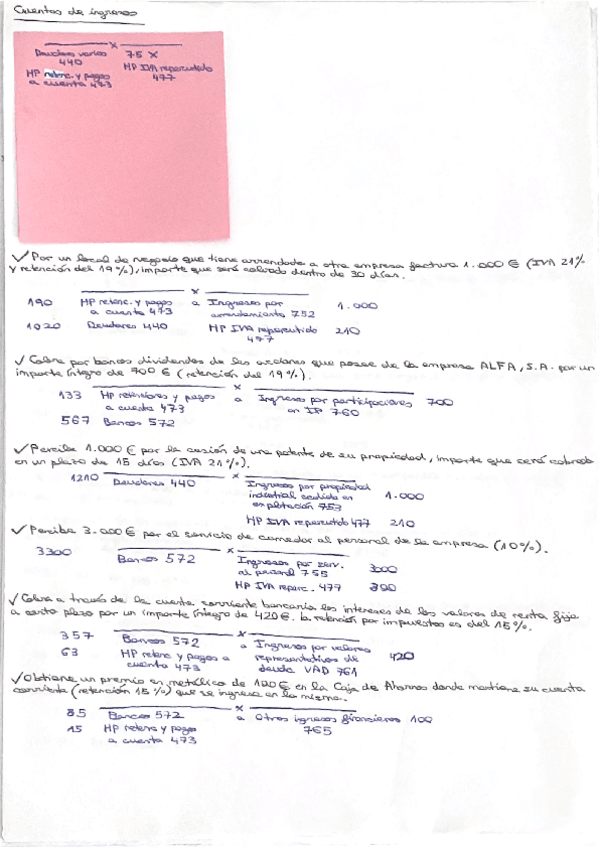 Cuentas de ingresos
x
Deudores varios 75 X
440 HP IVA repercutido
HP retenc. y pagos 477
a cuenta 473
✓ Por un local de negocio que tiene arrendado a otra empresa factura 1.000 € (IVA 21%
y retención del 19%), importe que será cobrado dentro de 30 días.
x
190 HP retenc. y pagos a Ingresos por 1.000
a cuenta 473 arrendamiento 752
1020 Deudores 440 HP IVA repercutido 210
477
✓ Cobra por bancos dividendos de las acciones que posee de la empresa ALFA, S.A. por un
importe íntegro de 700 € (retención del 19%).
x
133 HP retenciones y pagos a Ingresos por participaciones 700
a cuenta 473 en IP 760
567 Bancos 572
✓ Percibe 1.000 € por la cesión de una patente de su propiedad, importe que será cobrado
en un plazo de 15 días (IVA 21%).
x
1210 Deudores 440 Ingresos por propiedad
industrial cedida en 1.000
explotación 753
HP IVA repercutido 477 210
✓ Percibe 3.000 € por el servicio de comedor al personal de la empresa (10%).
x
3300 Bancos 572 Ingresos por serv. 3000
al personal 755
HP IVA reperc. 477 300
✓ Cobra a través de la cuenta corriente bancaria los intereses de los valores de renta fija
a corto plazo por un importe íntegro de 420 €. la retención por impuestos es del 15%.
x
357 Bancos 572 a Ingresos por valores
63 HP retenc y pagos a representativos de 420
cuenta 473 deuda VAD 761
✓ Obtiene un premio en metálico de 100 € en la Caja de Ahorros donde mantiene su cuenta
corriente (retención 15%) que se ingresa en la misma.
x
85 Bancos 572 a Otros ingresos financieros 100
15 HP retenc y pagos 765
a cuenta 473